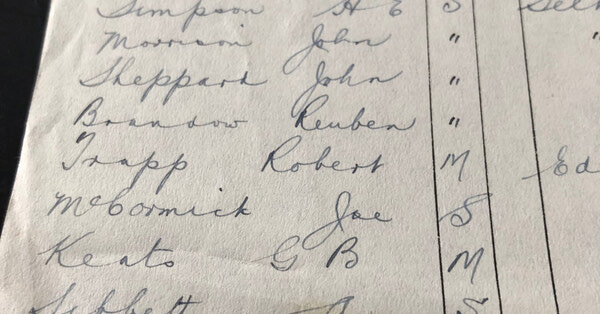 Simpson H E S
Morrison John "
Sheppard John "
Brandow Reuben "
Trapp Robert M Ed
McCormick Joe S
Keats G B M
S